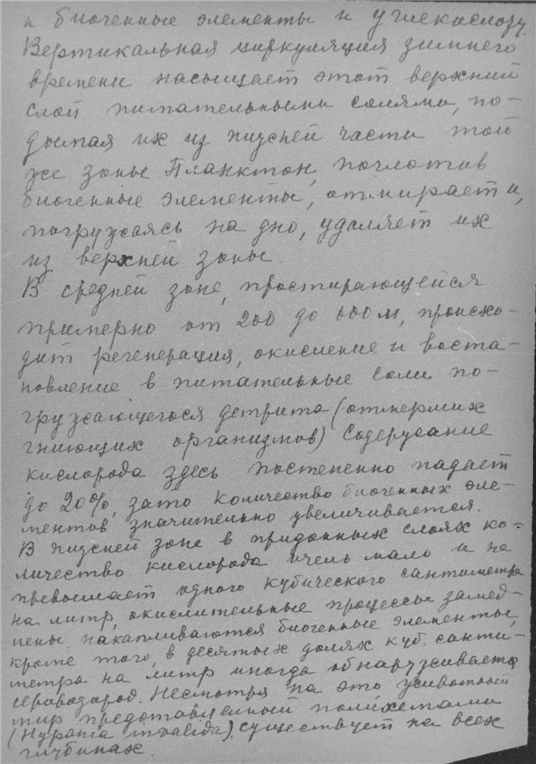 и биогенные элементы и углекислоту
Вертикальная циркуляция зимнего
времени насыщает этот верхний
слой питательными солями, по-
дымая их из нижней части той
же зоны. Планктон, поглотив
биогенные элементы, отмирает и,
погружаясь на дно, удаляет их
из верхней зоны.
В средней зоне, простирающейся
примерно от 200 до 600 м, происхо-
дит регенерация, окисление и воста-
новление в питательные соли по-
гружающегося детрита (отмерших
гниющих организмов) Содержание
кислорода здесь постепенно падает
до 20%, зато количество биогенных эле-
ментов значительно увеличивается.
В нижней зоне в придонных слоях ко-
личество кислорода очень мало и не
превышает одного кубического сантиметра
на литр, окислительные процессы замед-
лены накапливаются биогенные элементы,
кроме того, в десятых долях куб. санти-
метра на литр иногда обнаруживается
сероводород. Несмотря на это, животный
мир представленный полихетами
(Hypania invalida), существует на всех
глубинах.